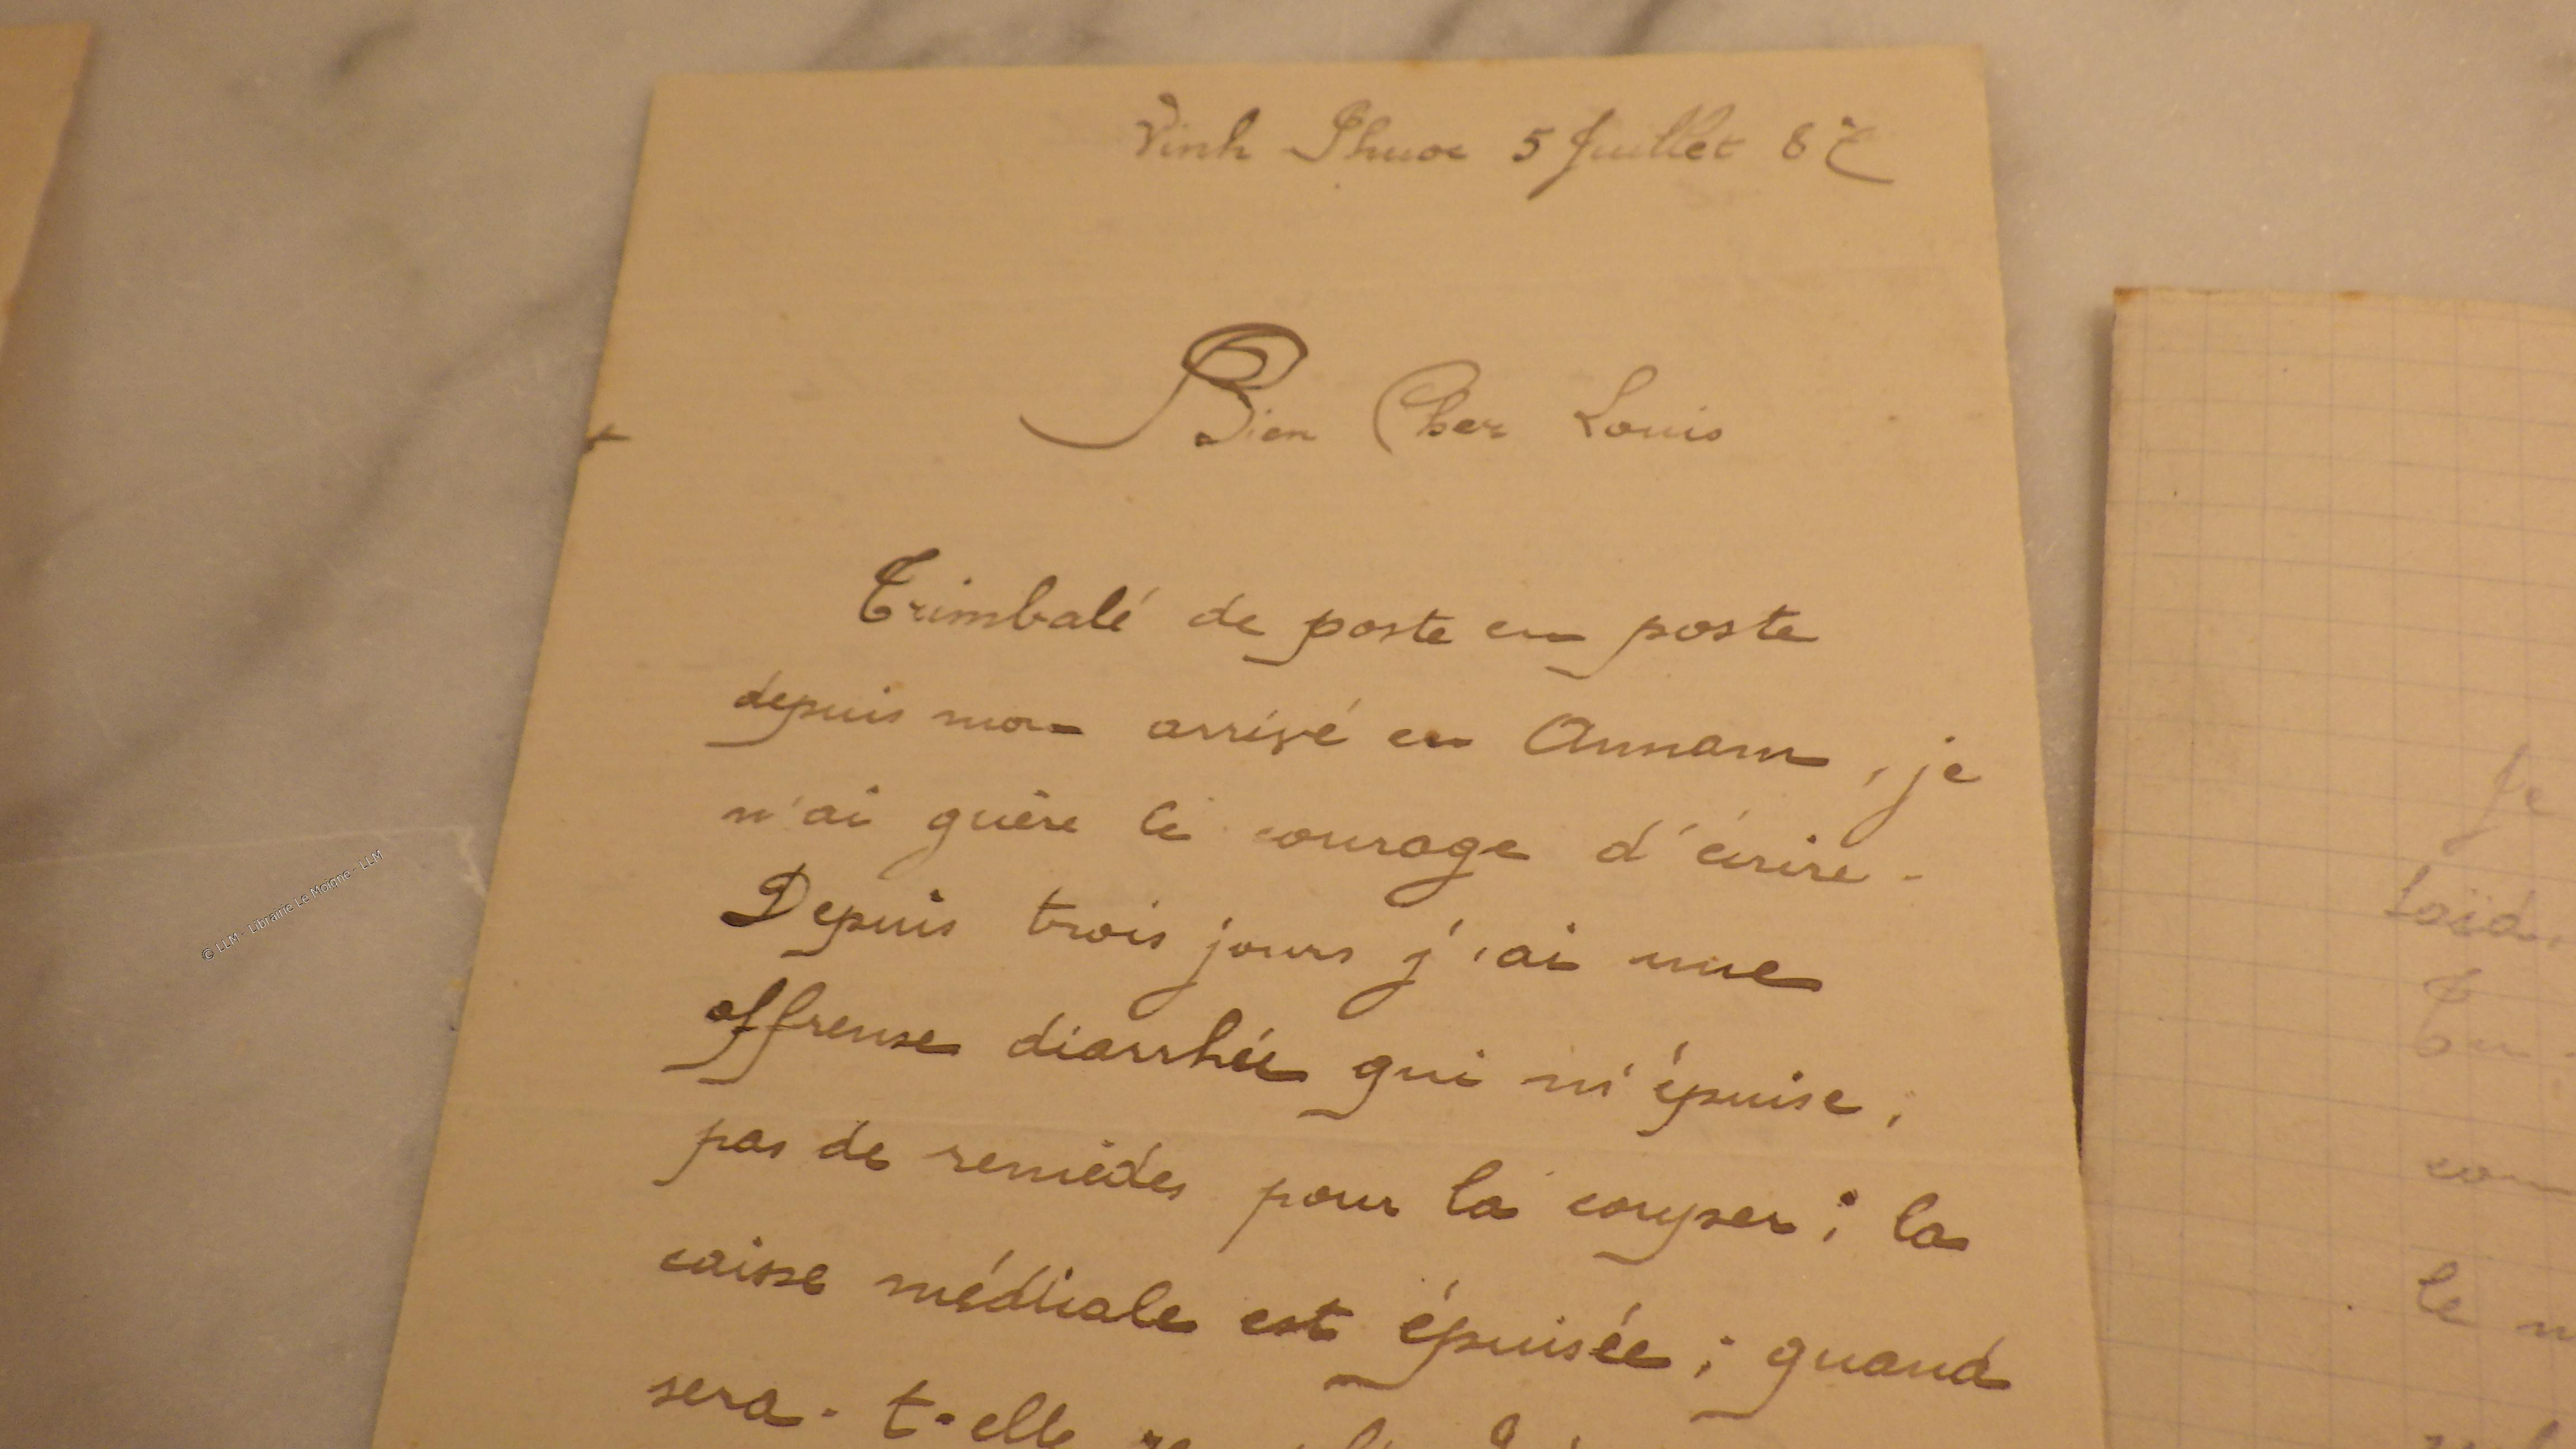 Vinh Phuoc 5 Juillet 87
Bien Cher Louis
Trimbalé de poste en poste
depuis mon arrivé en Annam, je
n'ai guère le courage d'écrire.
Depuis trois jours j'ai une
affreuse diarrhée qui m'épuise,
pas de remèdes pour la couper; la
caisse médicale est épuisée; quand
sera-t-elle
Je
laid
Tu
le
© LLM - Librairie Le Moigne - LLM